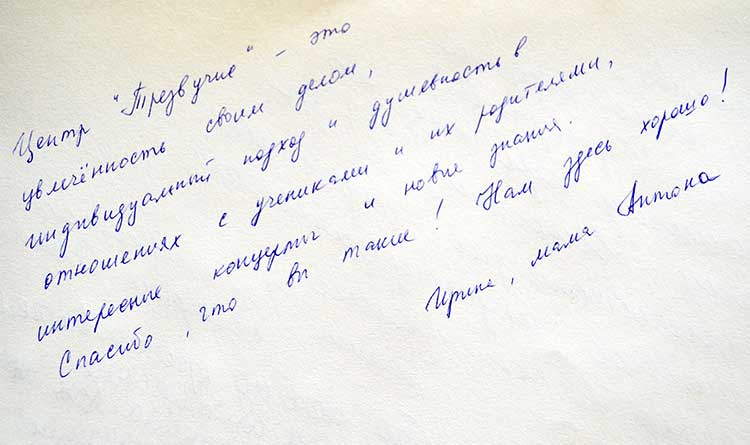 Центр "Трезвучие" - это
увлечённость своим делом,
индивидуальный подход и душевность в
отношениях с учениками и их родителями,
интересные концерты и новые знания.
Спасибо, что вы такие! Нам здесь хорошо!
Ирина, мама Антона